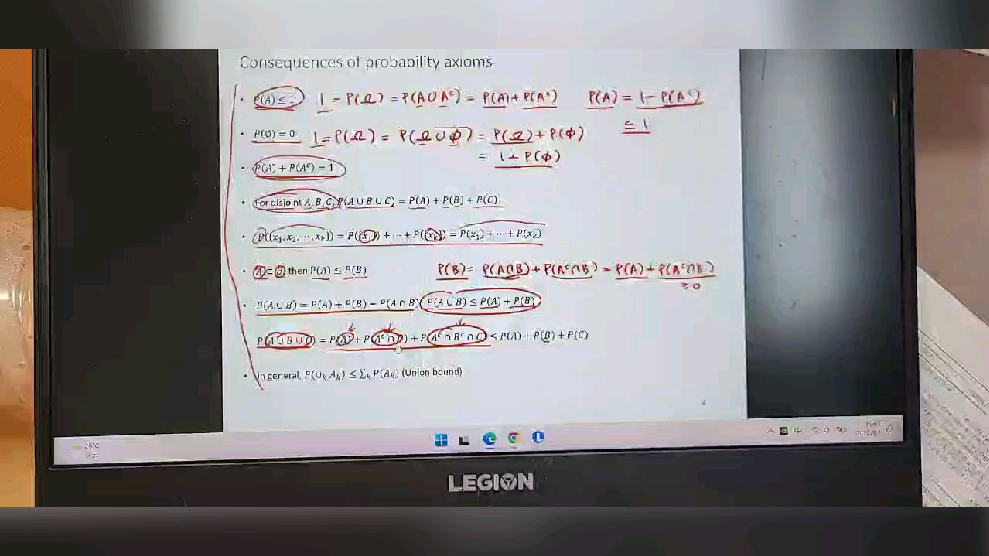 Consequences of probability axioms
• P(A) ≤ 1 = P(Ω) = P(A ∪ Aᶜ) = P(A) + P(Aᶜ) P(A) = 1 − P(Aᶜ)
≤ 1
• P(∅) = 0 1 = P(Ω) = P(Ω ∪ ϕ) = P(Ω) + P(ϕ)
= 1 + P(ϕ)
• P(A) + P(Aᶜ) = 1
• For disjoint A, B, C, P(A ∪ B ∪ C) = P(A) + P(B) + P(C)
• = ⋯ +
• then P(A) ≤ P(B) P(B) = P(A∩B) + P(Aᶜ∩B) = P(A) + P(Aᶜ∩B)
≥ 0
• P(A ∪ B) = P(A) + P(B) − P(A ∩ B) P(A ∪ B) ≤ P(A) + P(B)
P(A ∪ B ∪ C) = P(A) + + P(Aᶜ ∩ Bᶜ ∩ C) ≤ P(A) + P(B) + P(C)
• In general, P(∪ₖ Aₖ) ≤ ∑ₖ P(Aₖ) (Union bound)
LEGION